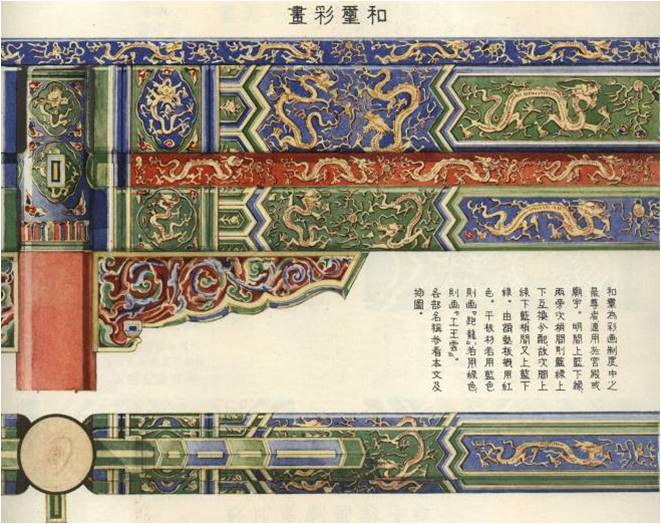 和璽彩畫
和璽為彩画制度中之
最尊者適用於宮殿或
廟宇。明間上藍下綠,
兩旁次梢間則藍綠上
下互換分配故次間上
綠下藍梢間又上藍下
綠。由額墊板概用紅
色。平板枋若用藍色
則画『跑龍』若用綠色
則画『工王雲』。
各部名稱參看本文及
插圖。